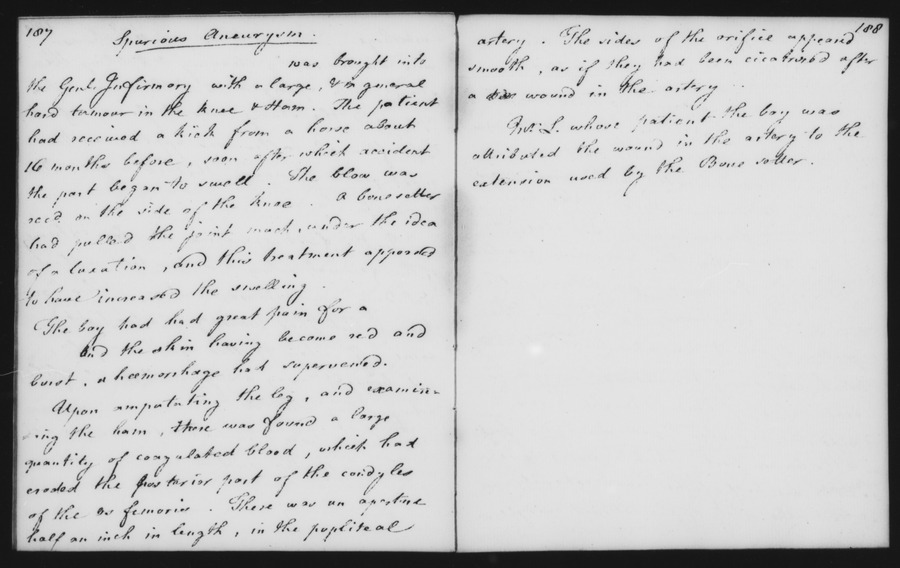 187
Spurious Aneurysm.
was brought into
the Genl. Infirmary with a large, & in general
hard tumour in the knee & Ham. The patient
had received a kick from a horse about
16 months before, soon after which accident
the part began to swell. The blow was
recd. on the side of the knee. A bonesetter
had pulled the joint much, under the idea
of a luxation, and this treatment appeared
to have increased the swelling.
The boy had had great pain for a
and the skin having become red and
burst, a hæmorrhage had supervened.
Upon amputating the leg, and examin-
-ing the ham, there was found a large
quantity of coagulated blood, which had
eroded the posterior part of the condyles
of the os femoris. There was an aperture
half an inch in length, in the popliteal
188
artery. The sides of the orifice appeared
smooth, as if they had been cicatrized after
a wound in the artery.
Mr. L. whose patient the boy was
attributed the wound in the artery to the
extension used by the Bone setter.